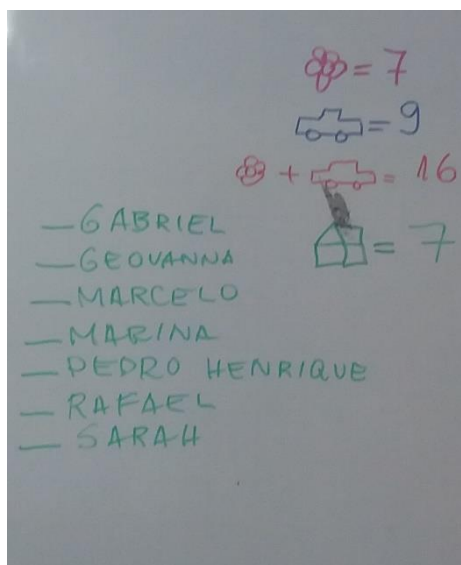 = 7
= 9
+ = 16
= 7
— GABRIEL
— GEOVANNA
— MARCELO
— MARINA
— PEDRO HENRIQUE
— RAFAEL
— SARAH